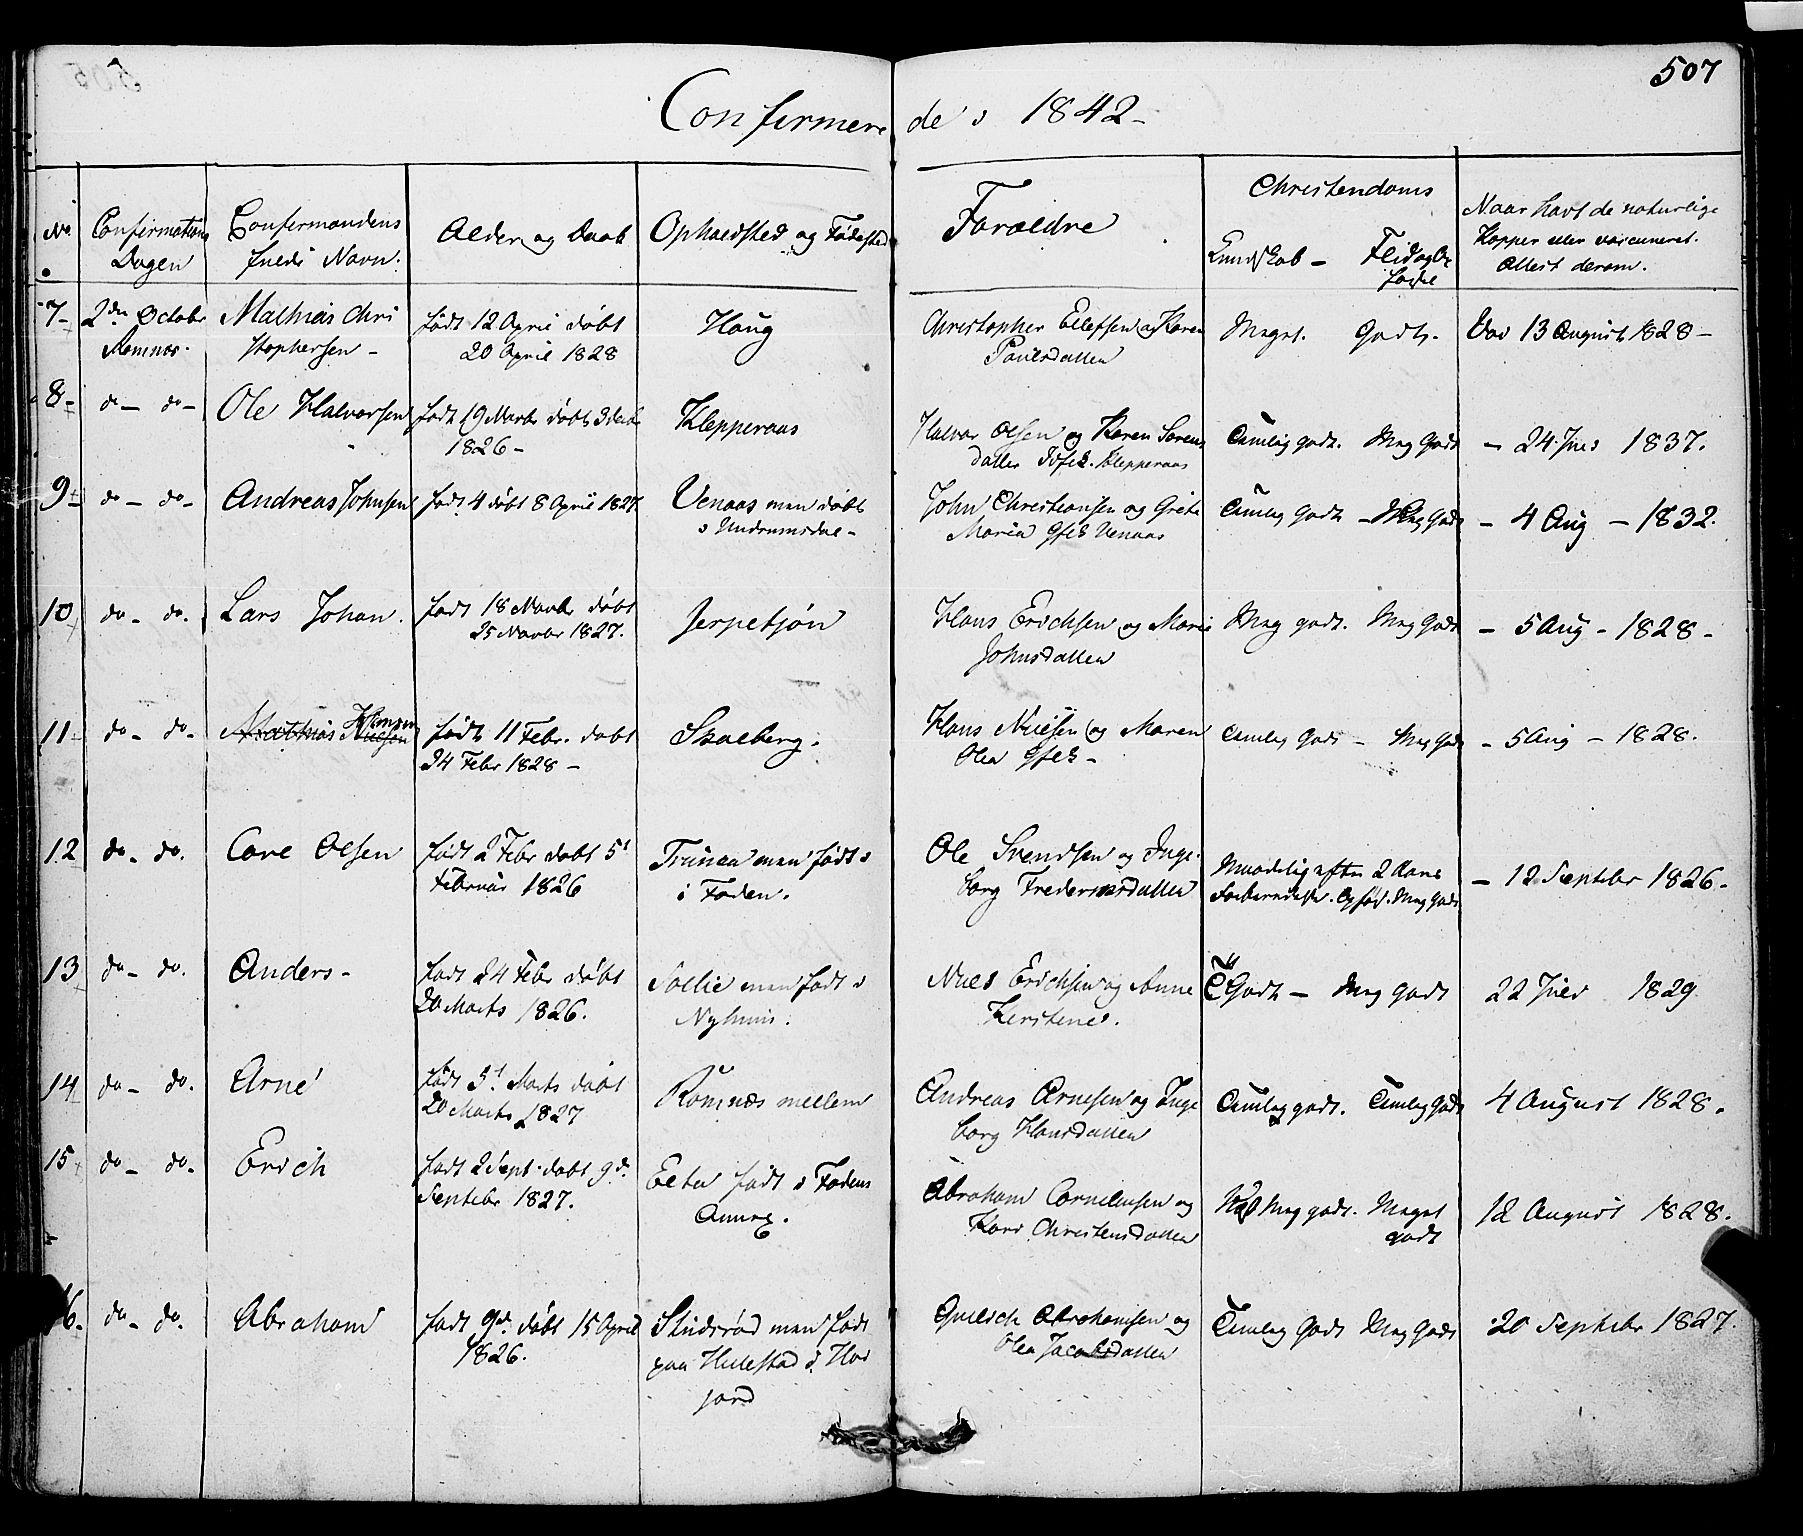 507
Confirmerede i 1842-
No
Confirmations
Dagen
Confirmandens
fulde Navn.
Alder og Daab
Opholdsted og Fødested
Forældre
Christendoms
Kundskab - Flid og Op
førsel
Naar havt de naturlige
Kopper eller vaccineret.
Attest derom.
7- 2den October
Ramnæs.
Mathias Chri
stophersen -
født 12 April døbt
20 April 1828
Haug
Christopher Ellefsen og Karen
Paulsdatter
Meget. Godt.
Vac 13 August 1828-
8- do- do- Ole Halvorsen
født 19 Marts døbt
1826-
Klepperaas
Halvor Olsen og Karen Sørens
datter Klepperaas
Temlig godt. Meg Godt
- 24 Juli 1837.
9 do- do- Andreas Johnsen født 4 døbt 8 April 1827.
Venaas men døbt
i Undrumsdal-
John Christiansen og Grete
Maria Venaas
Temlig Godt - Meg Godt - 4 Aug - 1832.
10 do- do. Lars Johan.
født 18 Novbr døbt
25 Novbr 1827.
Jerpetjøn
Hans Erichsen og Marie
Johnsdatter
Meg godt. Meg Godt - 5 Aug - 1828-
11 do- do- Mathias Nielsen
Hansen
født 11 Febr. døbt
24 Febr 1828-
Skaeberg.
Hans Nielsen og Maren
Olea
Temlig Godt - Meg Godt - 5 Aug - 1828.
12 do- do. Carl Olsen
født 2 Febr døbt 5t
Februar 1826
men født
i Foden.
Ole Svendsen og Inge
borg Fredericksdatter
Maadelig efter 2 Aars
Forberedelse. Opfør. Meg Godt
- 12 Septebr 1826-
13 do- do. Anders-
født 24 Febr døbt
20 Marts 1826.
Sollie men født i
Nyhuus.
Niels Erichsen og Anne
Kerstine.
T Godt - Meg godt 22 Juli 1829
14 do- do. Arne
født 3t Marts døbt
20 Marts 1827
Ramnæs mellem
Andreas Arnesen og Inge
borg Hansdatter
Temlig godt. Temlig Godt 4 August 1828.
15 do- do. Erich
født 2 Sept. døbt 9d.
Septebr 1827.
født i Fodens
Annex.
Abraham Cornelius​sen og
Kari Christensdatter
Meg godt. Meget
godt
12 August 1828.
16. do- do. Abraham
født 9d. døbt 15 April
1826.
Skudsrød men født
paa Hillestad i Hav
jord
Gulich Abrahamsen og
Olea Jacobsdatter
Temlig Godt Meg Godt 20 Septebr 1827.